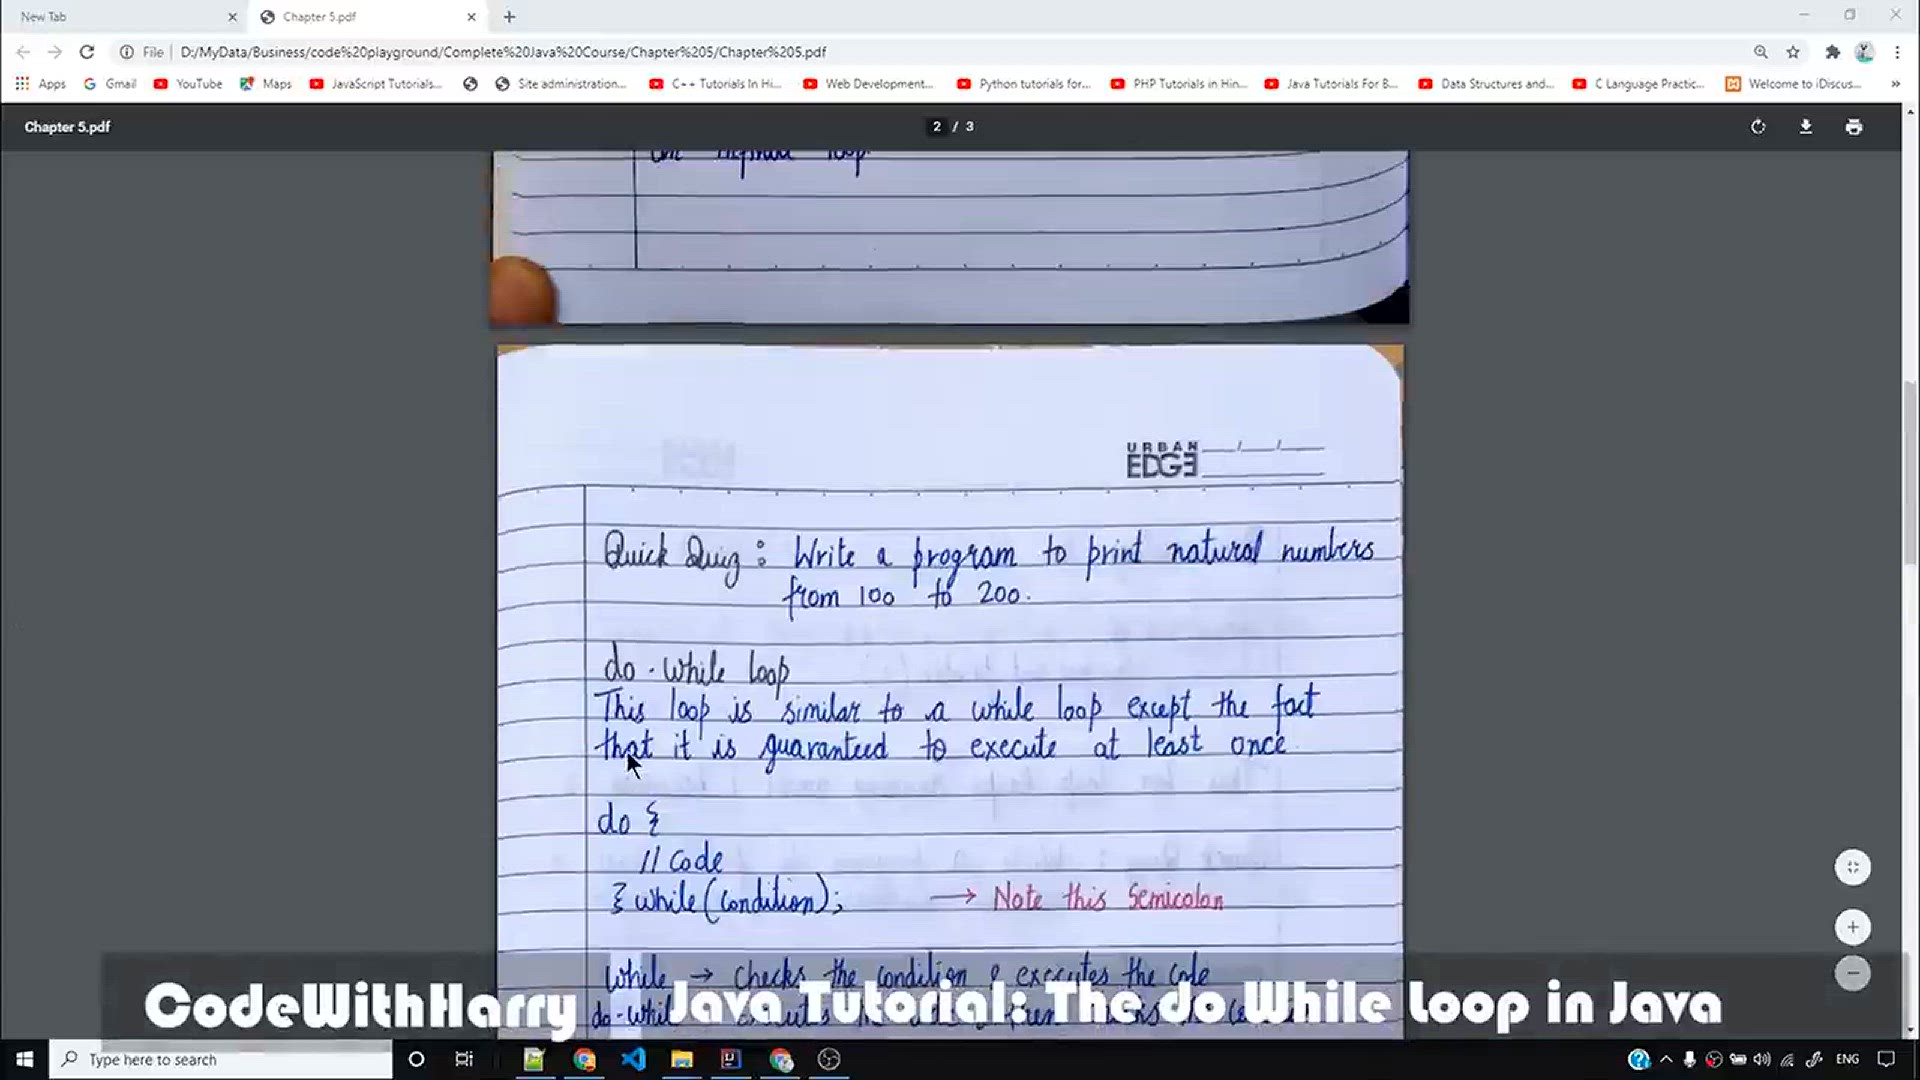 New Tab
Chapter 5.pdf
File D:/MyData/Business/code%20playground/Complete%20Java%20Course/Chapter%205/Chapter%205.pdf
Apps Gmail YouTube Maps JavaScript Tutorials... Site administration... C++ Tutorials In Hi... Web Development... Python tutorials for... PHP Tutorials in Hin... Java Tutorials For B... Data Structures and... C Language Practic... Welcome to iDiscus... »
Chapter 5.pdf 2 / 3
loop
URBAN
EDGE
Quick Quiz : Write a program to print natural numbers
from 100 to 200.
do-while loop
This loop is similar to a while loop except the fact
that it is guaranteed to execute at least once
do {
// Code
} while (condition); → Note this Semicolon
While → checks the condition & executes the code
do-while
CodeWithHarry Java Tutorial: The do While Loop in Java
Type here to search
ENG